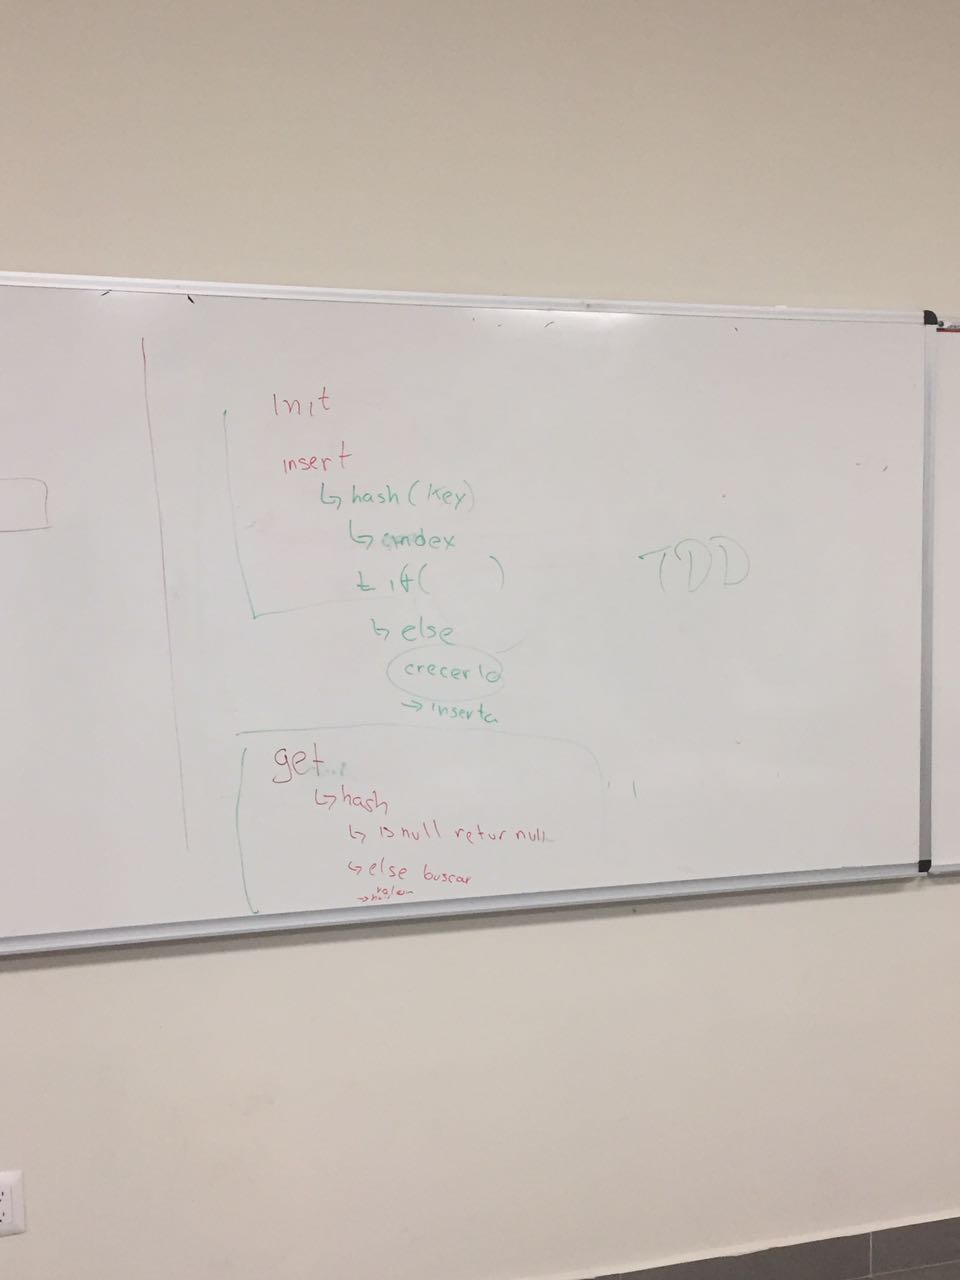 init
insert
↳ hash (key)
↳ index
↳ if( )
↳ else
crecerlo
→ inserta
TDD
get
↳ hash
↳ is null retur null
↳ else buscar
→